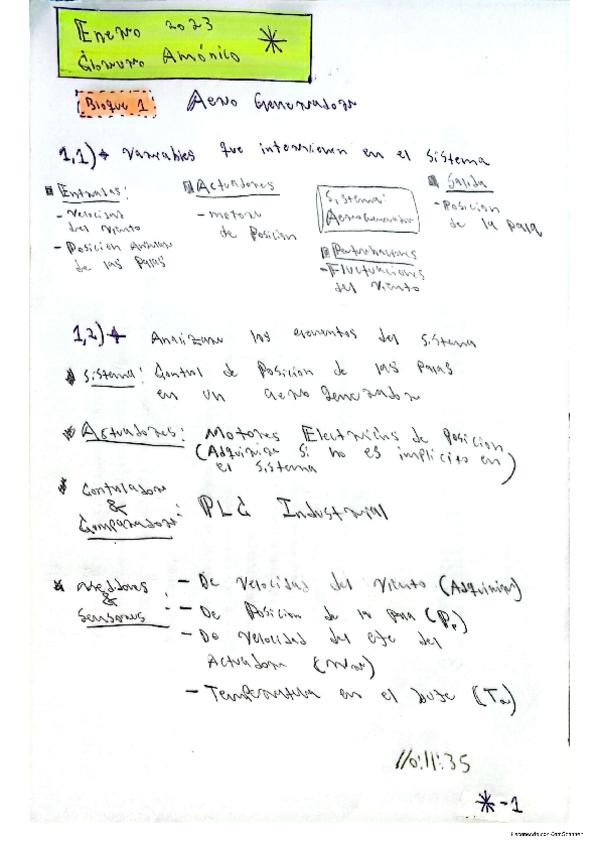 Enero 2023
Globuno Amónico *
Bloque 1 Aero Generador
1,1) Variables que intervienen en el sistema
Entradas:
- Velocidad
del Viento
- Posicion Angular
de las Palas
Actuadores
- motor
de Posicion
Sistema:
AeroGenerador
Perturbaciones
- Fluctuaciones
del Viento
Salida
- Posicion
de la pala
1,2) Analizar los elementos del sistema
Sistema: Control de Posicion de las palas
en un aerogenerador
Actuadores: Motores Electricos de Posicion
(Adquirir si no es implicito en
el sistema)
Controlador
&
Comparador: PLC Industrial
Medidores
&
Sensores:
- De Velocidad del Viento (Adquirir)
- De Posicion de la pala (Pr)
- De Velocidad del eje del
Actuador
- Temperatura en el
110:11:35
*-1